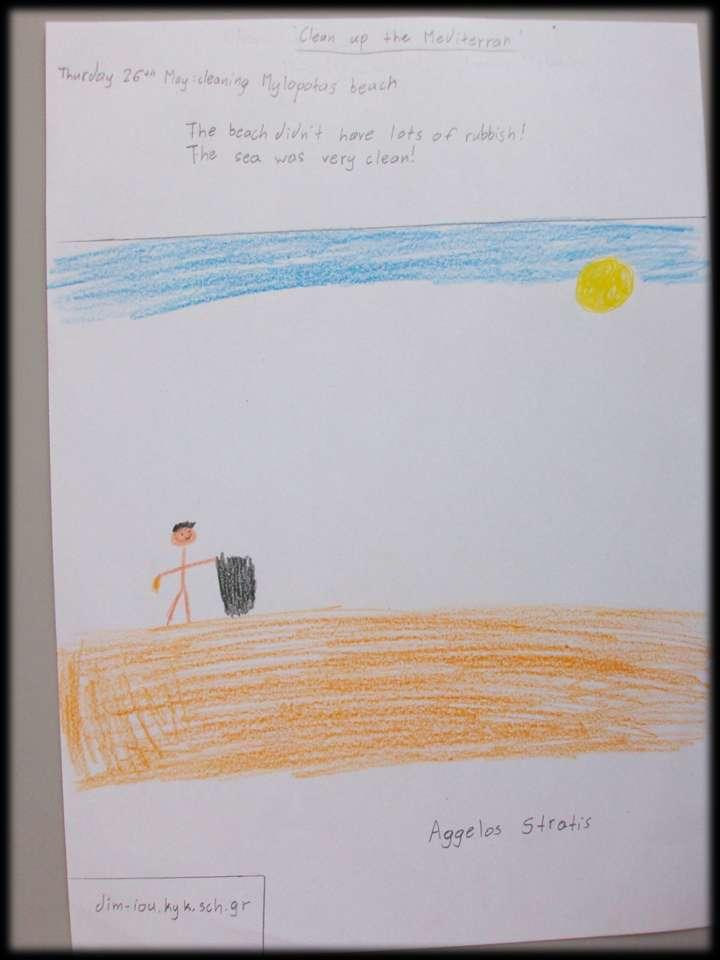 'Clean up the Mediterran'
Thurday 26th May:cleaning Mylopotas beach
The beach didn't have lots of rubbish!
The sea was very clean!
Aggelos Stratis
dim-iou.kyk.sch.gr